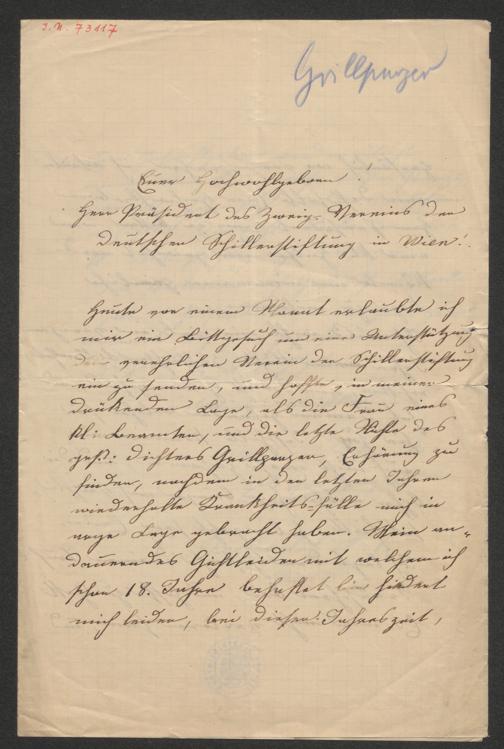 I.N. 73117
Grillparzer
Euer Hochwohlgeboren!
Herr Präsident des Zweig-Vereins der
deutschen Schillerstiftung in Wien!
Heute vor einem Monat erlaubte ich
mir ein Bittgesuch um eine Unterstützung
den verehrlichen Verein der Schillerstiftung
ein zu senden, und hoffte, in meiner
drükenden Lage, als die Frau eines
kl: Beamten, und die letzte Nichte des
gest: Dichters Grillparzer, Erhörung zu
finden, nachdem in den letzten Jahren
wiederholte Krankheits-fälle mich in
arge Lage gebracht haben. Mein an-
dauerndes Gichtleiden mit welchem ich
schon 18. Jahre behaftet bin hindert
mich leider, bei dieser Jahreszeit,